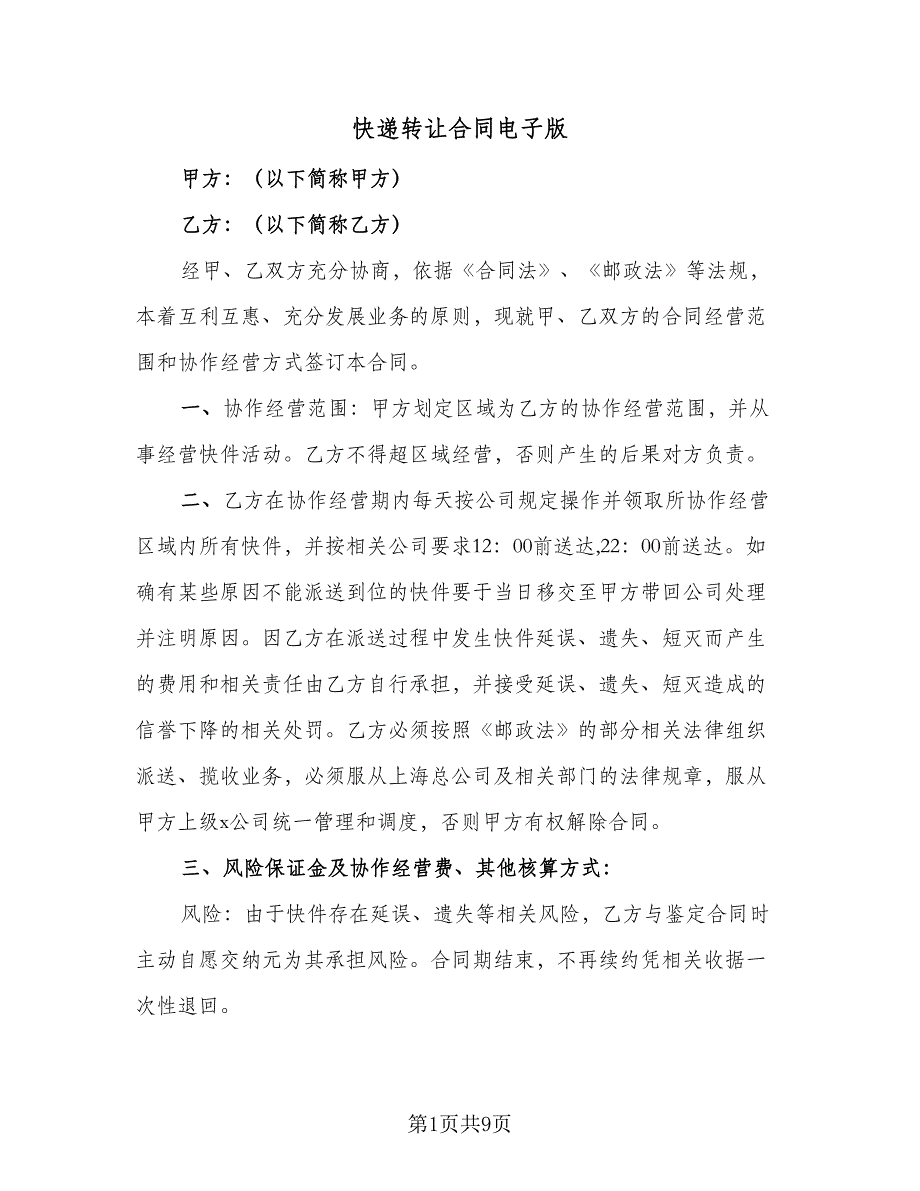 快递转让合同电子版
甲方：（以下简称甲方）
乙方：（以下简称乙方）
经甲、乙双方充分协商，依据《合同法》、《邮政法》等法规，
本着互利互惠、充分发展业务的原则，现就甲、乙双方的合同经营范
围和协作经营方式签订本合同。
一、协作经营范围：甲方划定区域为乙方的协作经营范围，并从
事经营快件活动。乙方不得超区域经营，否则产生的后果对方负责。
二、乙方在协作经营期内每天按公司规定操作并领取所协作经营
区域内所有快件，并按相关公司要求12：00前送达,22：00前送达。如
确有某些原因不能派送到位的快件要于当日移交至甲方带回公司处理
并注明原因。因乙方在派送过程中发生快件延误、遗失、短灭而产生
的费用和相关责任由乙方自行承担，并接受延误、遗失、短灭造成的
信誉下降的相关处罚。乙方必须按照《邮政法》的部分相关法律组织
派送、揽收业务，必须服从上海总公司及相关部门的法律规章，服从
甲方上级x公司统一管理和调度，否则甲方有权解除合同。
三、风险保证金及协作经营费、其他核算方式：
风险：由于快件存在延误、遗失等相关风险，乙方与鉴定合同时
主动自愿交纳元为其承担风险。合同期结束，不再续约凭相关收据一
次性退回。
第1页共9页